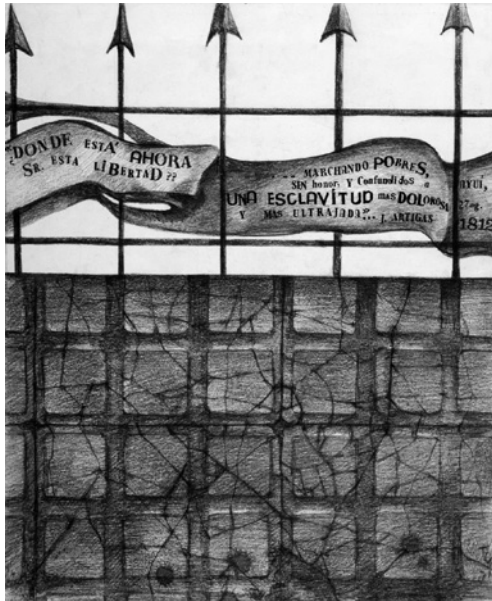 ¿DONDE ESTA' AHORA
SR. ESTA LiBERTAD??
.... MARCHANDO POBRES,
SIN honor, Y Confundidos a
UNA ESCLAVITUD MAS DOLOROSA
Y MAS ULTRAJADA"... J. ARTIGAS
AYUÍ,
1812